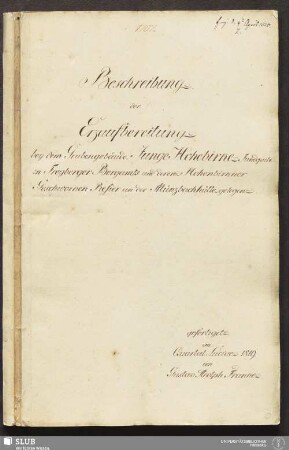 Beschreibung
der
Erzaufbereitung
bey dem Grubengebäude Junge Hohebirne Fundgrube
in Freyberger Bergamts und deren Hohenbirkner
Geschwornen Refier an der Münzbachhütte gelegen
gefertiget
im
Quartal Luciae 1819
von
Gustav Adolph Francke
SLUB
WIR FÜHREN WISSEN.